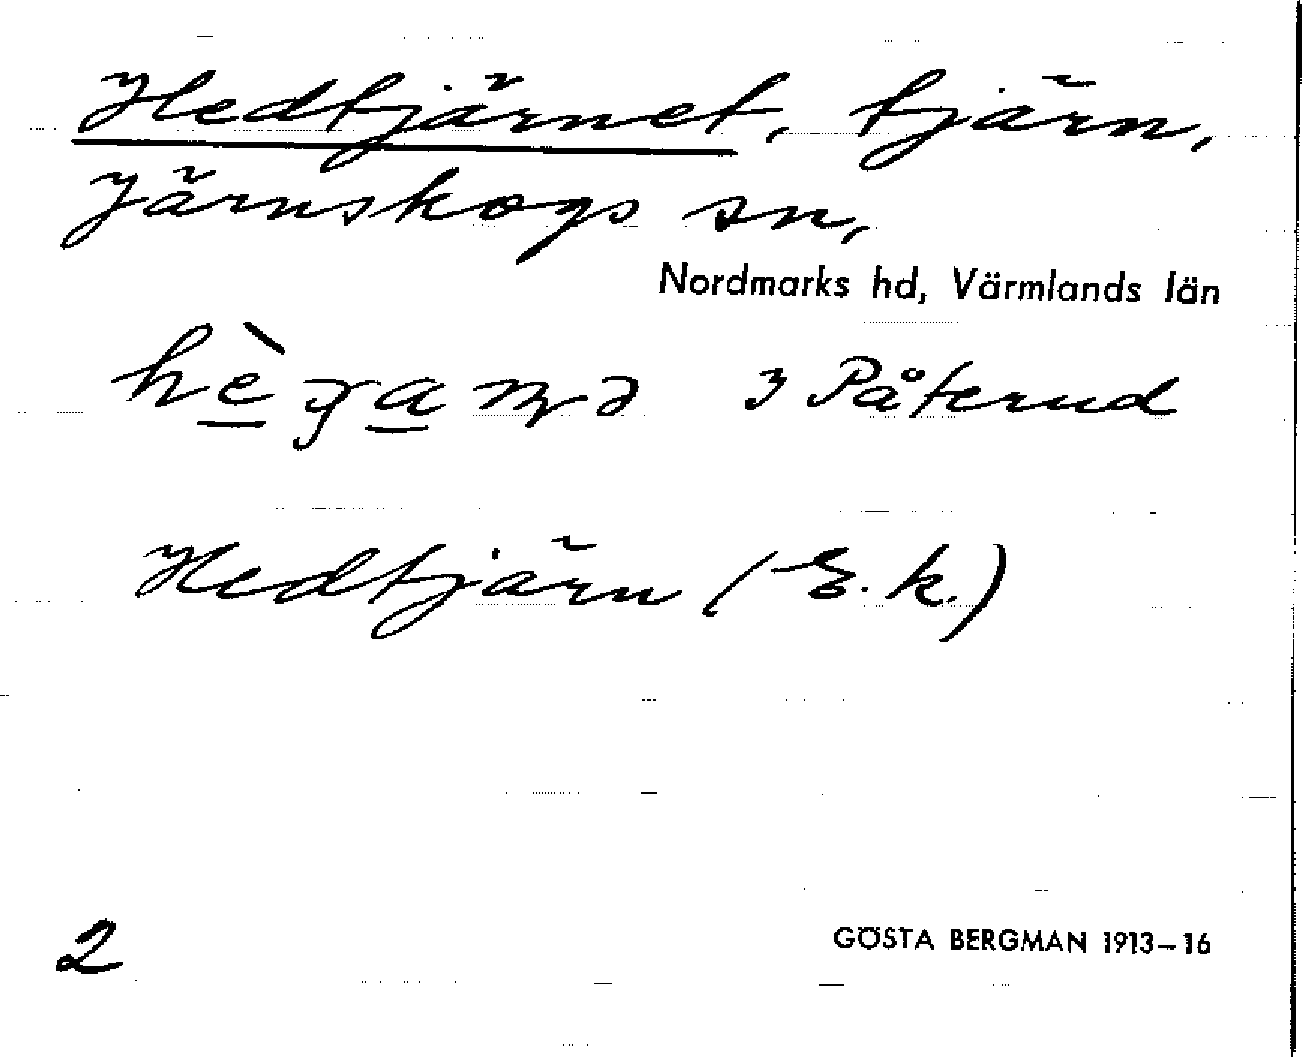 Hedtjärnet, tjärn,
Järnskogs sn,
Nordmarks hd, Värmlands län
3 Påterud
Hedtjärn (E.k.)
2
GÖSTA BERGMAN 1913–16